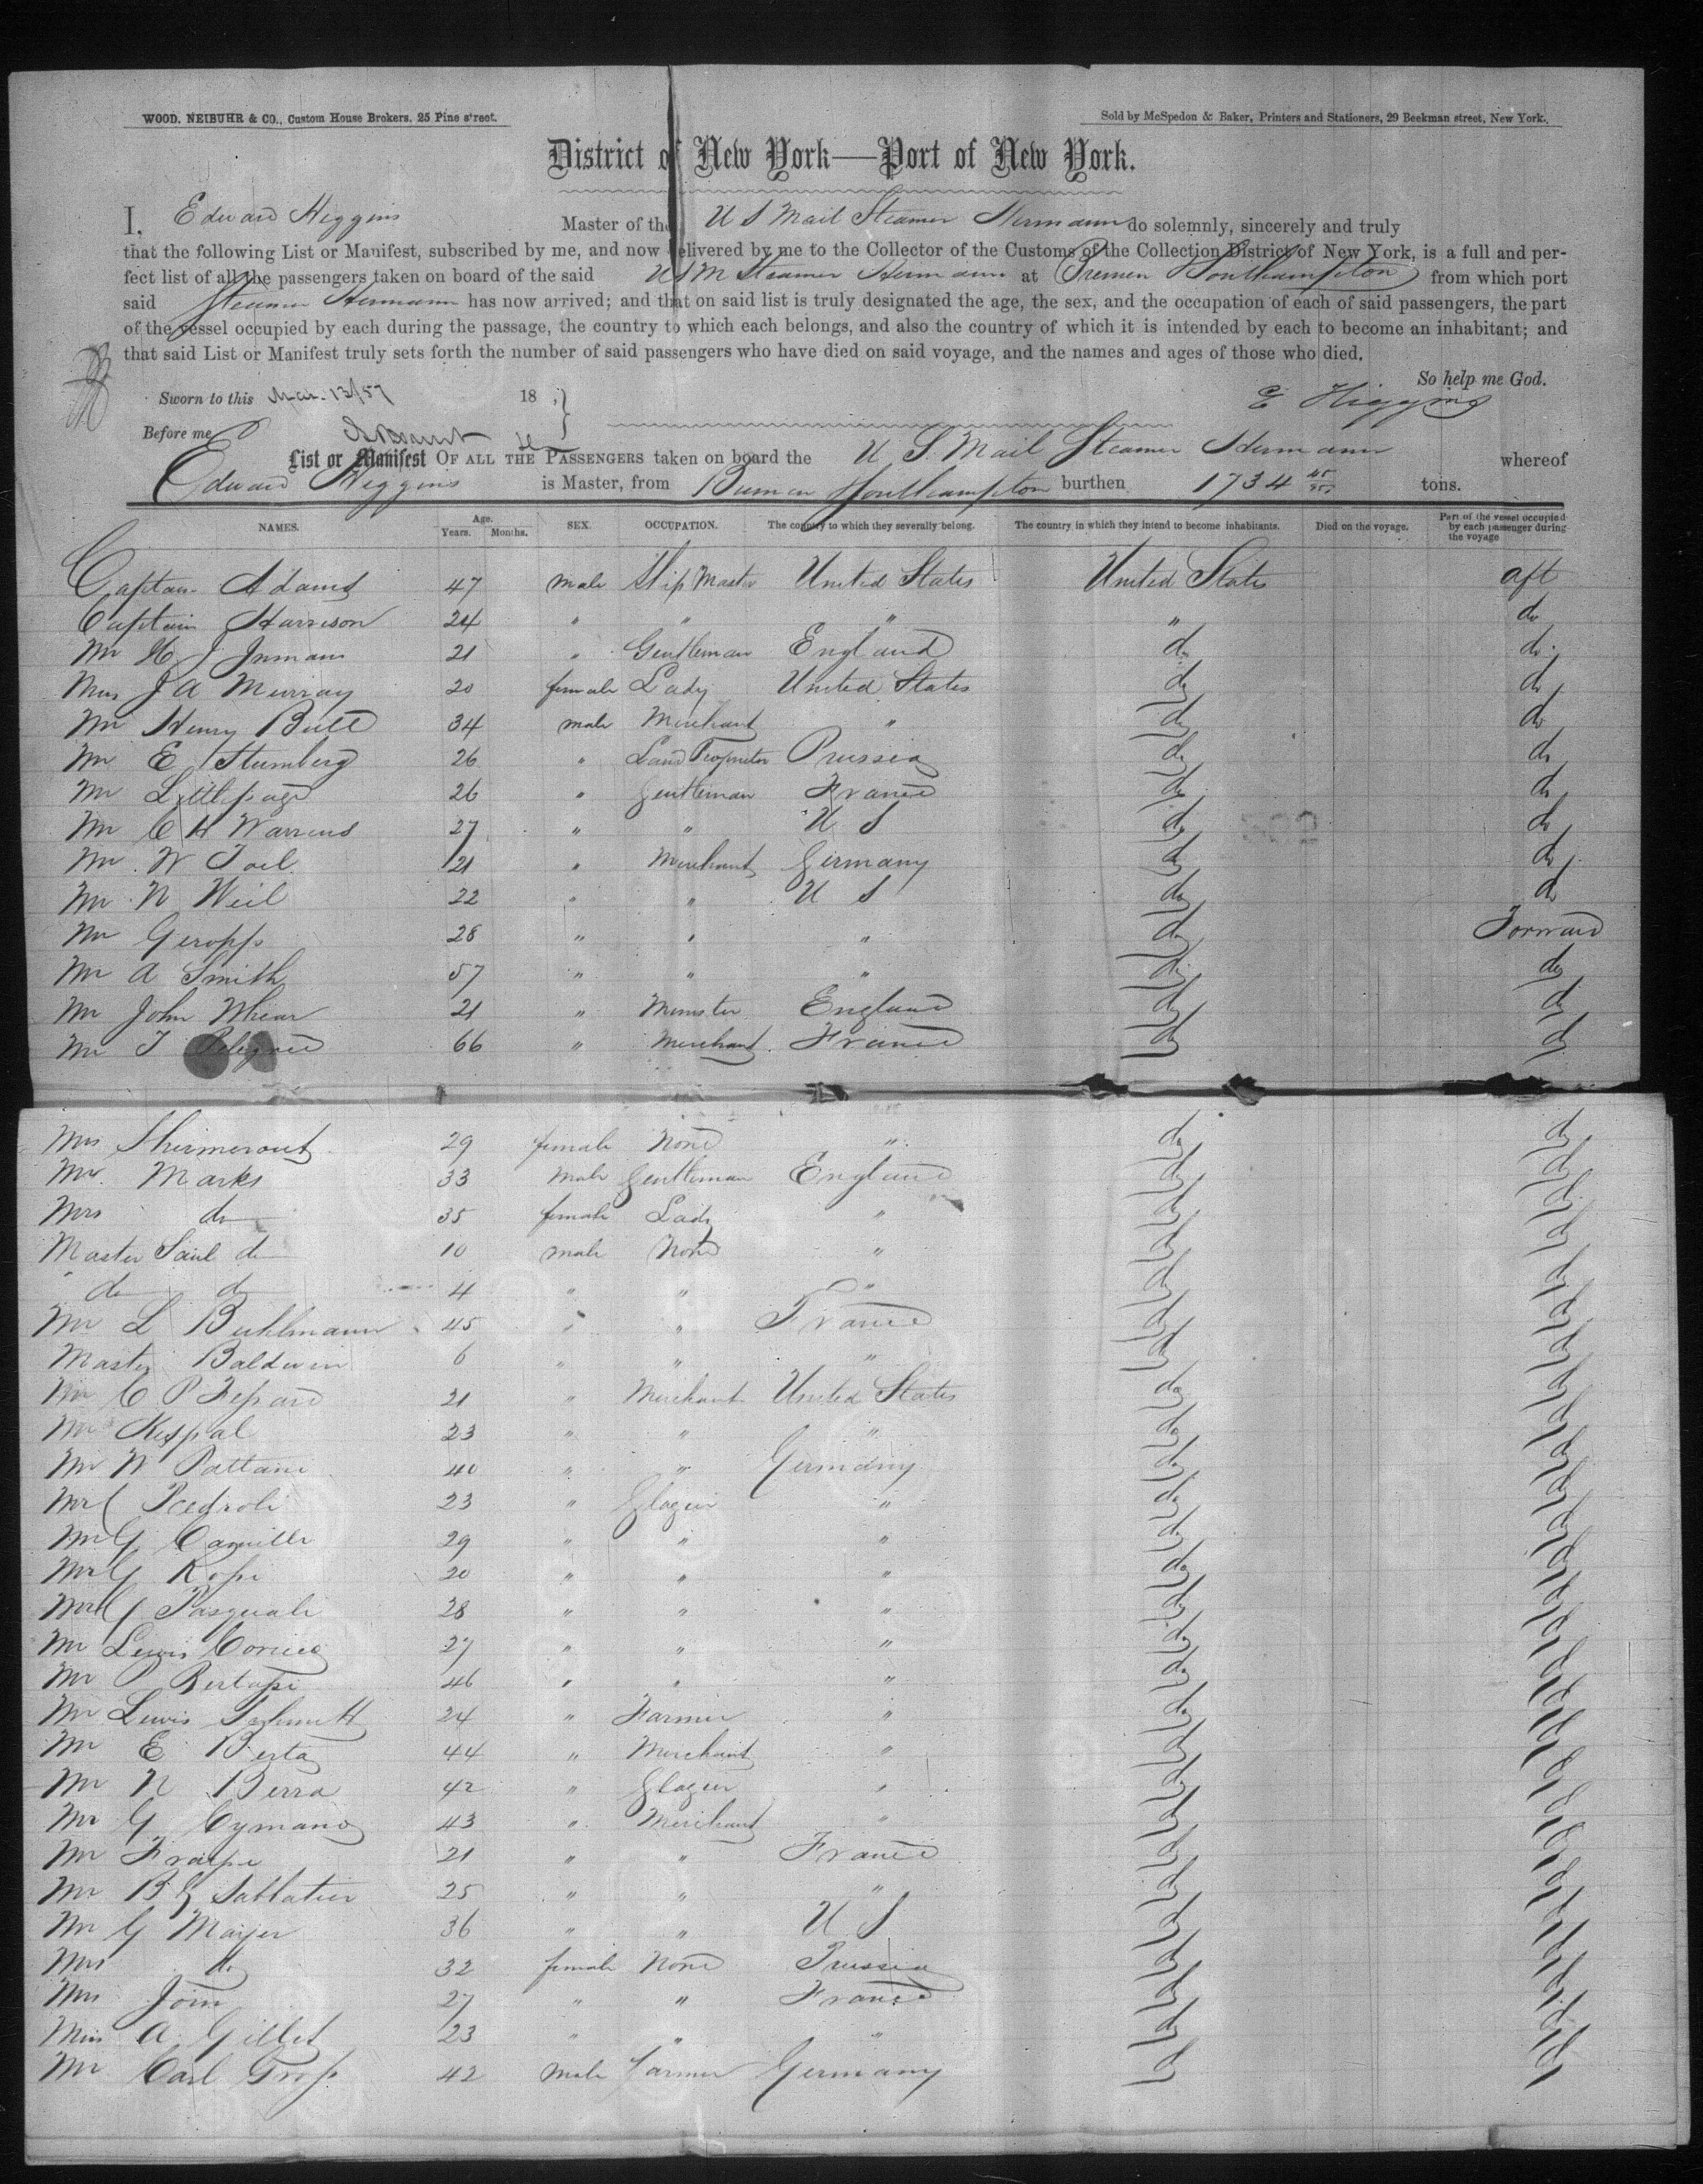 WOOD, NEIBUHR & CO., Custom House Brokers, 25 Pine street.
Sold by McSpedon & Baker, Printers and Stationers, 29 Beekman street, New York.
District of New York—Port of New York.
I, Edward Higgins Master of the U S Mail Steamer Hermann do solemnly, sincerely and truly
that the following List or Manifest, subscribed by me, and now delivered by me to the Collector of the Customs of the Collection District of New York, is a full and per-
fect list of all the passengers taken on board of the said U S M Steamer Hermann at Bremen Southampton from which port
said Steamer Hermann has now arrived; and that on said list is truly designated the age, the sex, and the occupation of each of said passengers, the part
of the vessel occupied by each during the passage, the country to which each belongs, and also the country of which it is intended by each to become an inhabitant; and
that said List or Manifest truly sets forth the number of said passengers who have died on said voyage, and the names and ages of those who died.
So help me God.
Sworn to this Mar. 13/57 18
E Higgins
Before me
List or Manifest OF ALL THE PASSENGERS taken on board the U S. Mail Steamer Hermann whereof
Edward Higgins is Master, from Bremen Southampton burthen 1734 45/95 tons.
NAMES. Age. Years. Months. SEX. OCCUPATION. The country to which they severally belong. The country in which they intend to become inhabitants. Died on the voyage. Part of the vessel occupied by each passenger during the voyage
Captain Adams 47 male Ship Master United States United States aft
Captain Harrison 24 " " " " do
Mr H J Inman 21 " Gentleman England do do
Mrs J A Murray 20 female Lady United States do do
Mr Henry Bull 34 male Merchant " do do
Mr E Sternberg 26 " Land Proprietor Prussia do do
Mr Littlepage 26 " Gentleman France do do
Mr C H Warrens 27 " " U S do do
Mr W Toel 21 " Merchant Germany do do
Mr N Weil 22 " " U S do do
Mr Geropp 28 " " " do Forward
Mr A Smith 57 " " " do do
Mr John Whear 21 " Minister England do do
Mr T 66 " Merchant France do do
Mrs 29 female None " do do
Mr. Marks 33 male Gentleman England do do
Mrs do 35 female Lady " do do
Master Saul do 10 male None " do do
" do do 4 " " " do do
Mr L Buhlmann 45 " " France do do
Master Baldwin 6 " " " do do
Mr C P 21 " Merchant United States do do
Mr Kespal 23 " " " do do
Mr W Pattani 40 " " Germany do do
Mr C Pedroli 23 " Glazier " do do
Mr G Camille 29 " " " do do
Mr G Rossi 20 " " " do do
Mr G Pasquali 28 " " " do do
Mr Lewis 27 " " " do do
Mr P Bertossi 46 " " " do do
Mr Lewis Schmitt 24 " Farmer " do do
Mr E Berta 44 " Merchant " do do
Mr N Berra 42 " Glazier " do do
Mr G Cymano 43 " Merchant " do do
Mr 21 " " France do do
Mr B G Sabbatier 25 " " " do do
Mr G Mayer 36 " " U S do do
Mrs do 32 female None Prussia do do
Mrs Join 27 " " France do do
Miss A. Gillet 23 " " " do do
Mr Carl Gross 42 male Farmer Germany do do